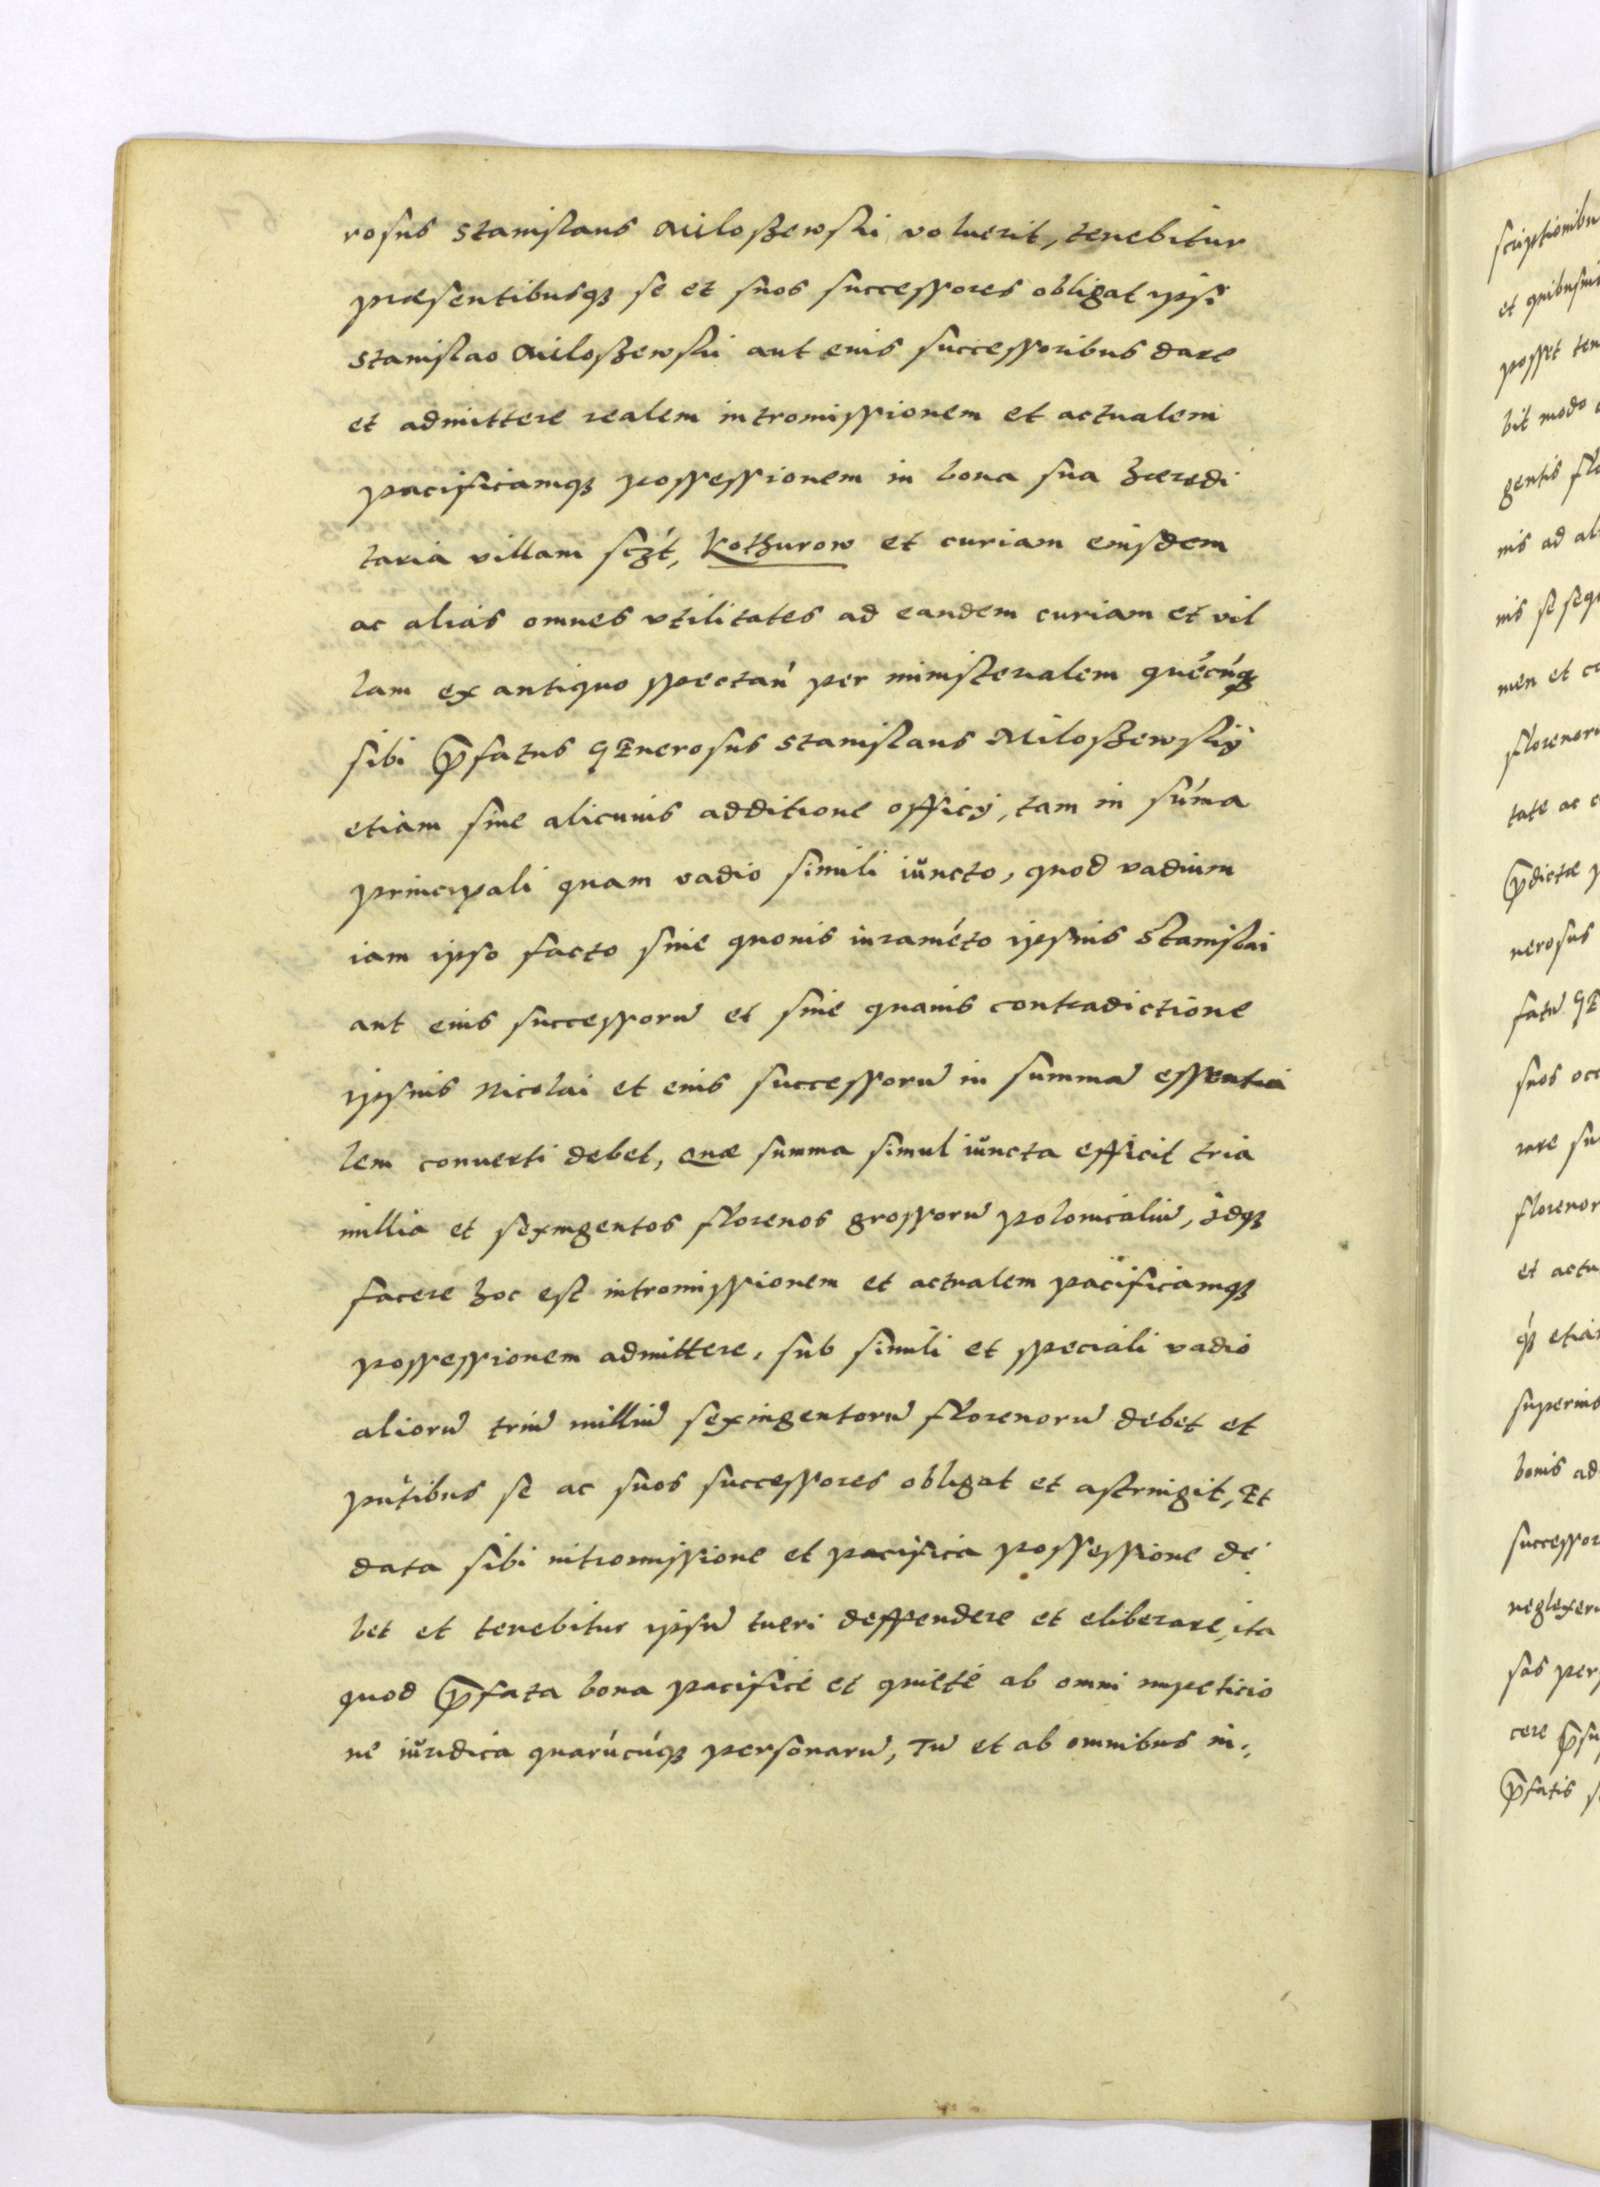 rosus Stanislaus Miloszewski voluerit, tenebitur
præsentibusq₃ se et suos successores obligat ipsi
Stanislao Miloszewski aut eius successoribus dare
et admittere realem intromissionem et actualem
pacificamq₃ possessionem in bona sua hæredi
taria villam sczt, Kothurow et curiam eiusdem
ac alias omnes vtilitates ad eandem curiam et vil
lam ex antiquo spectan̄ per ministerialem quēcūq₃
sibi p̄fatus GEnerosus Stanislaus Miloszewskij
etiam sine alicuius additione officij, tam in sūma
principali quam vadio simili iuncto, quod vadium
iam ipso facto sine quouis iuramēto ipsius Stanislai
aut eius successorū et sine quauis contradictione
ipsius Nicolai et eius successorū in summā essentia
lem conuerti debet, quæ summa simul iuncta efficit tria
millia et sexingentos florenos grossorū polonicaliū, idq₃
facere hoc est intromissionem et actualem pacificamq₃
possessionem admittere, sub simili et speciali vadio
aliorū triū milliū sexingentorū florenorū debet et
pn̄tibus se ac suos successores obligat et astringit, Et
data sibi intromissione et pacifica possessione de
bet et tenebitur ipsū tueri deffendere et eliberare, ita
quod p̄fata bona pacificè et quietè ab omni impeticio
ne iuridica quarūcūq₃ personarū, Tū et ab omnibus in,
scriptionibu
et quibusui
posset ten
bit modo
gentis flo
nis ad al
nis se sequ
men et c
florenor
tate ac c
p̄dictæ p
nerosus
fatū GE
suos occ
rare su
florenor
et actu
q₃ etia
superius
bonis ad
successor
neglexer
sas per
cere p̄su
p̄fatis s